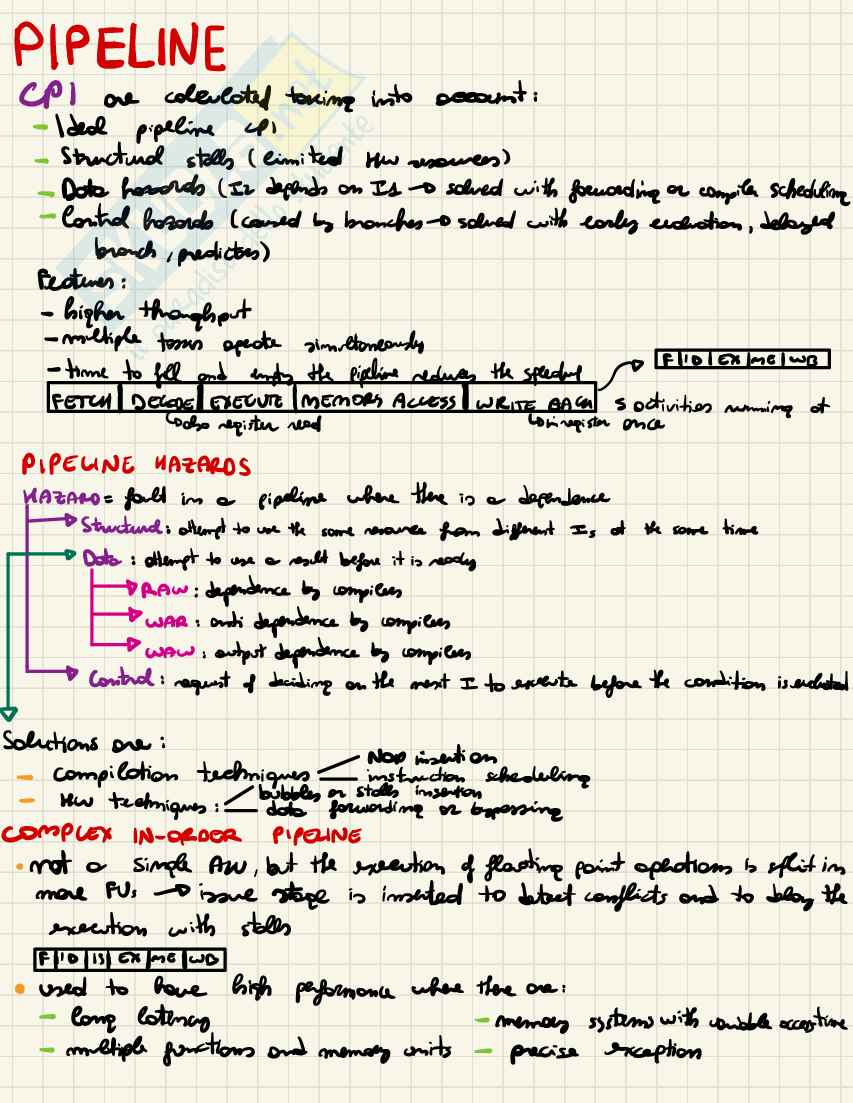 PIPELINE
CPI are calculated taking into account:
- Ideal pipeline CPI
- Structural stalls (limited HW resources)
- Data hazards (I2 depends on I1 → solved with forwarding or compiler scheduling
- Control hazards (caused by branches → solved with early evaluation, delayed
branch, predictors)
Features:
- higher throughput
- multiple tasks operate simultaneously
- time to fill and empty the pipeline reduces the speedup
F | ID | EX | ME | WB
FETCH | DECODE | EXECUTE | MEMORY ACCESS | WRITE BACK
5 activities running at
↳ also register read ↳ in register once
PIPELINE HAZARDS
HAZARD = fault in a pipeline where there is a dependence
→ Structural: attempt to use the same resource from different Is at the same time
→ Data: attempt to use a result before it is ready
→ RAW: dependence by compilers
→ WAR: anti dependence by compilers
→ WAW: output dependence by compilers
→ Control: request of deciding on the next I to execute before the condition is evaluated
Solutions are:
- compilation techniques
NOP insertion
instruction scheduling
- HW techniques:
bubbles or stalls insertion
data forwarding or bypassing
COMPLEX IN-ORDER PIPELINE
• not a simple ALU, but the execution of floating point is split in
more FUs → issue stage is inserted to detect conflicts and to delay the
execution with stalls
F | ID | IS | EX | ME | WB
• used to have high performance where there are:
- long latency
- memory systems with variable
- multiple functions and memory units
- precise exception